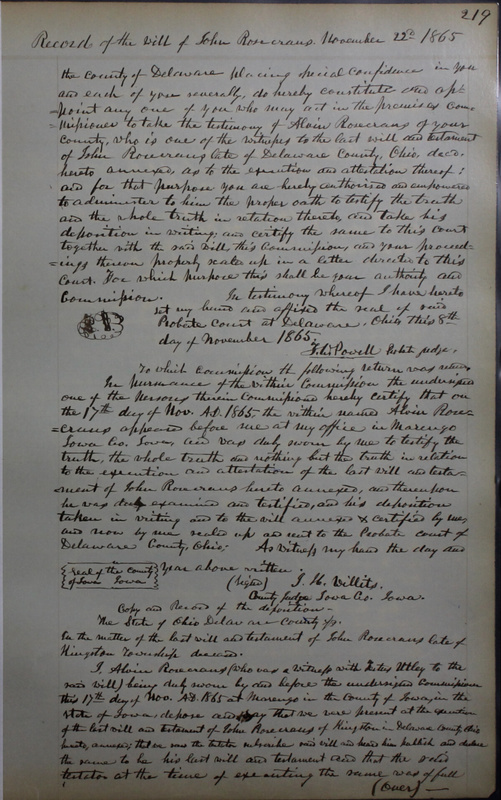 219
Record of the Will of John Rosecrans. November 22d 1865
the county of Delaware placing special confidence in you
and each of you severally, do hereby constitute and ap-
=point any one of you who may act in the premises Com-
=mipioner to take the testimony of Alvin Rosecrans of your
county, who is one of the witnesses to the last will and testament
of John Rosecrans late of Delaware County, Ohio, decd.
hereto annexed, as to the execution and attestation thereof:
and for that purpose you are hereby authorised and empowered
to administer to him the proper oath to testify the truth
and the whole truth in relation thereto, and take his
deposition in writing; and certify the same to this court
together with the said Will, this Commission, and your proceed-
=ings thereon properly sealed up in a letter directed to this
Court. For which purpose this shall be your authority and
Commission. In testimony whereof I have hereto
set my hand and affixed the seal of said
Probate Court at Delaware, Ohio, this 8th
day of November 1865.
Powell Probate Judge.
To which commission the following return was
In pursuance of the within Commission the undersigned
one of the Persons therein Commissioned hereby certify that on
the 17th day of Nov. A.D. 1865 the within named Alvin Rose-
=crans appeared before me at my office in Marengo
Iowa Co. Iowa, and was duly sworn by me to testify the
truth, the whole truth and nothing but the truth in relation
to the execution and attestation of the last will and testa-
=ment of John Rosecrans hereto annexed, and thereupon
he was duly examined and testified, and his deposition
taken in writing and to the will annexed & certified by me,
and now by me sealed up and sent to the Probate court of
Delaware County, Ohio; As witness my hand the day and
{seal of the county of Iowa Iowa} year above written.
(Signed) J. H. Willits,
County Judge Iowa Co. Iowa.
Copy and Record of the deposition—
The State of Ohio Delaware County ss.
In the matter of the last will and testament of John Rosecrans late of
Kingston Township deceased.
I, Alvin Rosecrans (who was a witness with Utley to the
said will) being duly sworn by and before the undersigned Commissioner
this 17th day of Nov. A.D. 1865 at Marengo in the County of Iowa, in the
state of Iowa, depose and say that we were present at the execution
of the last will and testament of John Rosecrans of Kingston in Delaware County, Ohio
hereto annexed, that we saw the testator subscribe said will and heard him publish and declare
the same to be his last will and testament and that the said
testator at the time of executing the same was of full
(Over)—